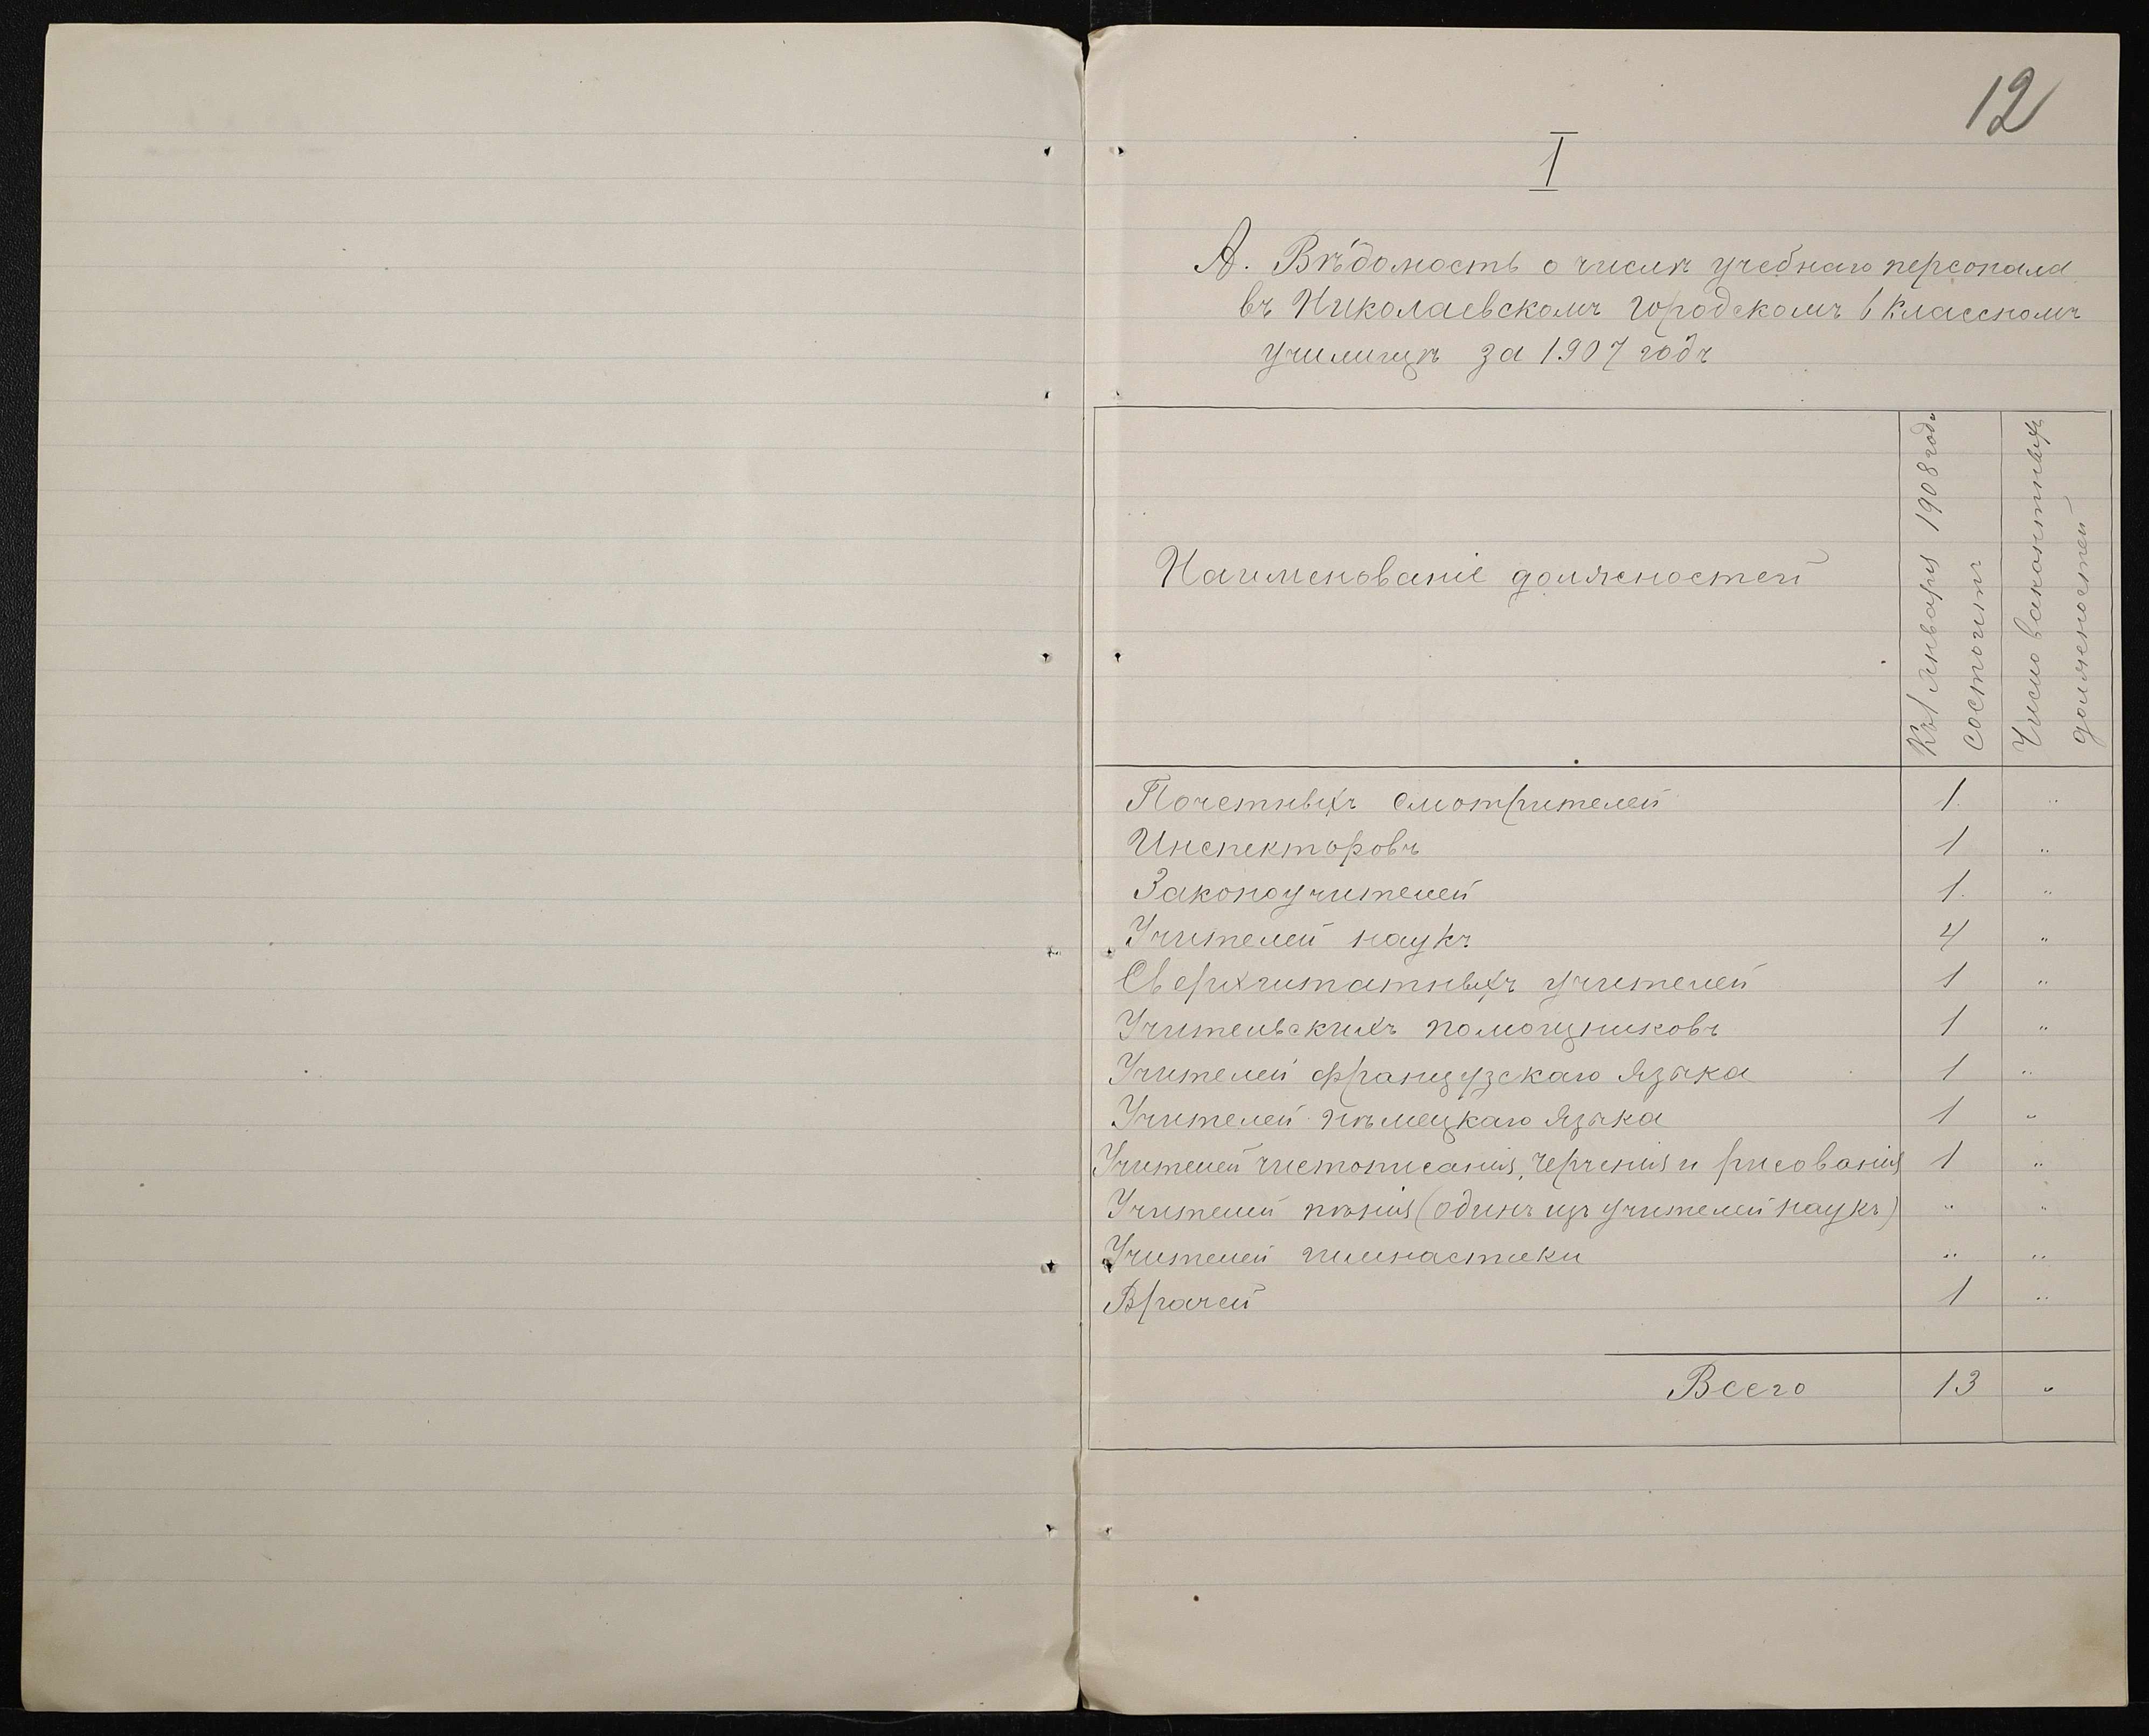 12
I
А. Вѣдомость о числѣ учебнаго персонала
въ Николаевскомъ городскомъ 6 классномъ
училищѣ за 1907 годъ
Наименованіе должностей
Къ 1 Января 1908 года
состоитъ
Число вакантныхъ
должностей
Почетныхъ смотрителей 1. "
Инспекторовъ 1 "
Законоучителей 1. "
Учителей наукъ 4 "
Сверхштатныхъ учителей 1 "
Учительскихъ помощниковъ 1 "
Учителей французскаго языка 1 "
Учителей нѣмецкаго языка 1 "
Учителей чистописанія, черченія и рисованія 1 "
Учителей пѣнія (одинъ изъ учителей наукъ) " "
Учителей гимнастики " "
Врачей 1 "
Всего 13 "